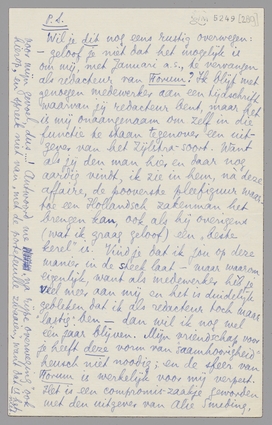 5249 [280]
P.S.
Wil je dit nog eens rustig overwegen:
geloof je niet dat het mogelijk is
om mij met Januari a.s. te vervangen
als redacteur van Forum? Ik blijf met
genoegen medewerker aan een tijdschrift
waarvan jij redacteur bent, maar het
is mij onaangenaam om zelf in die
functie te staan tegenover een uit-
gever van het Zijlstra-soort. Want
als jij den man hier en daar nog
aardig vindt, ik zie in hem, na deze
affaire, de pooverste pleetfiguur waar-
toe een Hollandsch zakenman het
brengen kan, ook als hij overigens
(wat ik graag geloof) een „beste
kerel" is. Vind je dat ik jou op deze
manier in de steek laat – maar waarom
eigenlijk, want als medewerker heb je
veel meer aan mij en het is duidelijk
gebleken dat ik als redacteur toch maar
lastig ben – dan wil ik nog wel
een jaar blijven. Mijn vriendschap voor
je heeft deze vorm van saamhoorigheid
heusch niet noodig; en de sfeer van
Forum is werkelijk voor mij verpest.
Het is een compromis-zaakje geworden
met den uitgever van Alie Smeding,
voor mijn gevoel dus...! Antwoord me
hierop, en spreek niet van